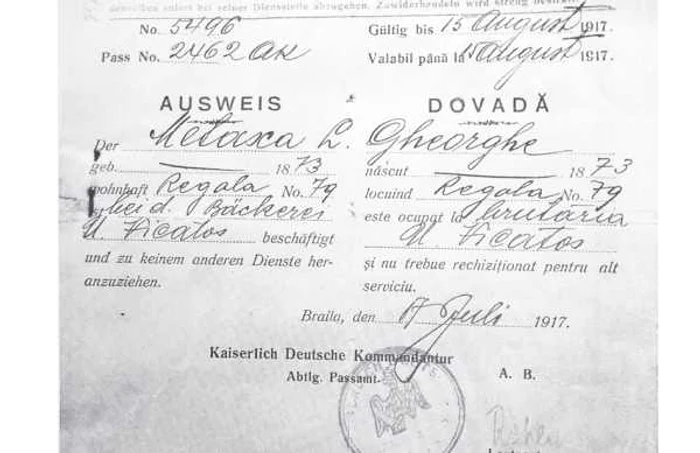 denselben sofort bei seiner Dienststelle abzugeben. Zuwiderhandeln wird streng bestraft
No. 5496 Gültig bis 15 August 1917.
Pass No. 2462 AK Valabil până la 15 August 1917.
AUSWEIS DOVADĂ
Der Metaxa L. Gheorghe
geb. 1873 născut 1873
wohnhaft Regala No. 79 locuind Regala No. 79
bei d. Bäckerei este ocupat la brutăria
U. Vicatos beschäftigt U. Vicatos
und zu keinem anderen Dienste her- și nu trebue rechiziționat pentru alt
anzuziehen. serviciu.
Braila, den 17 Juli 1917.
Kaiserlich Deutsche Kommandantur
Abtlg. Passamt. A. B.